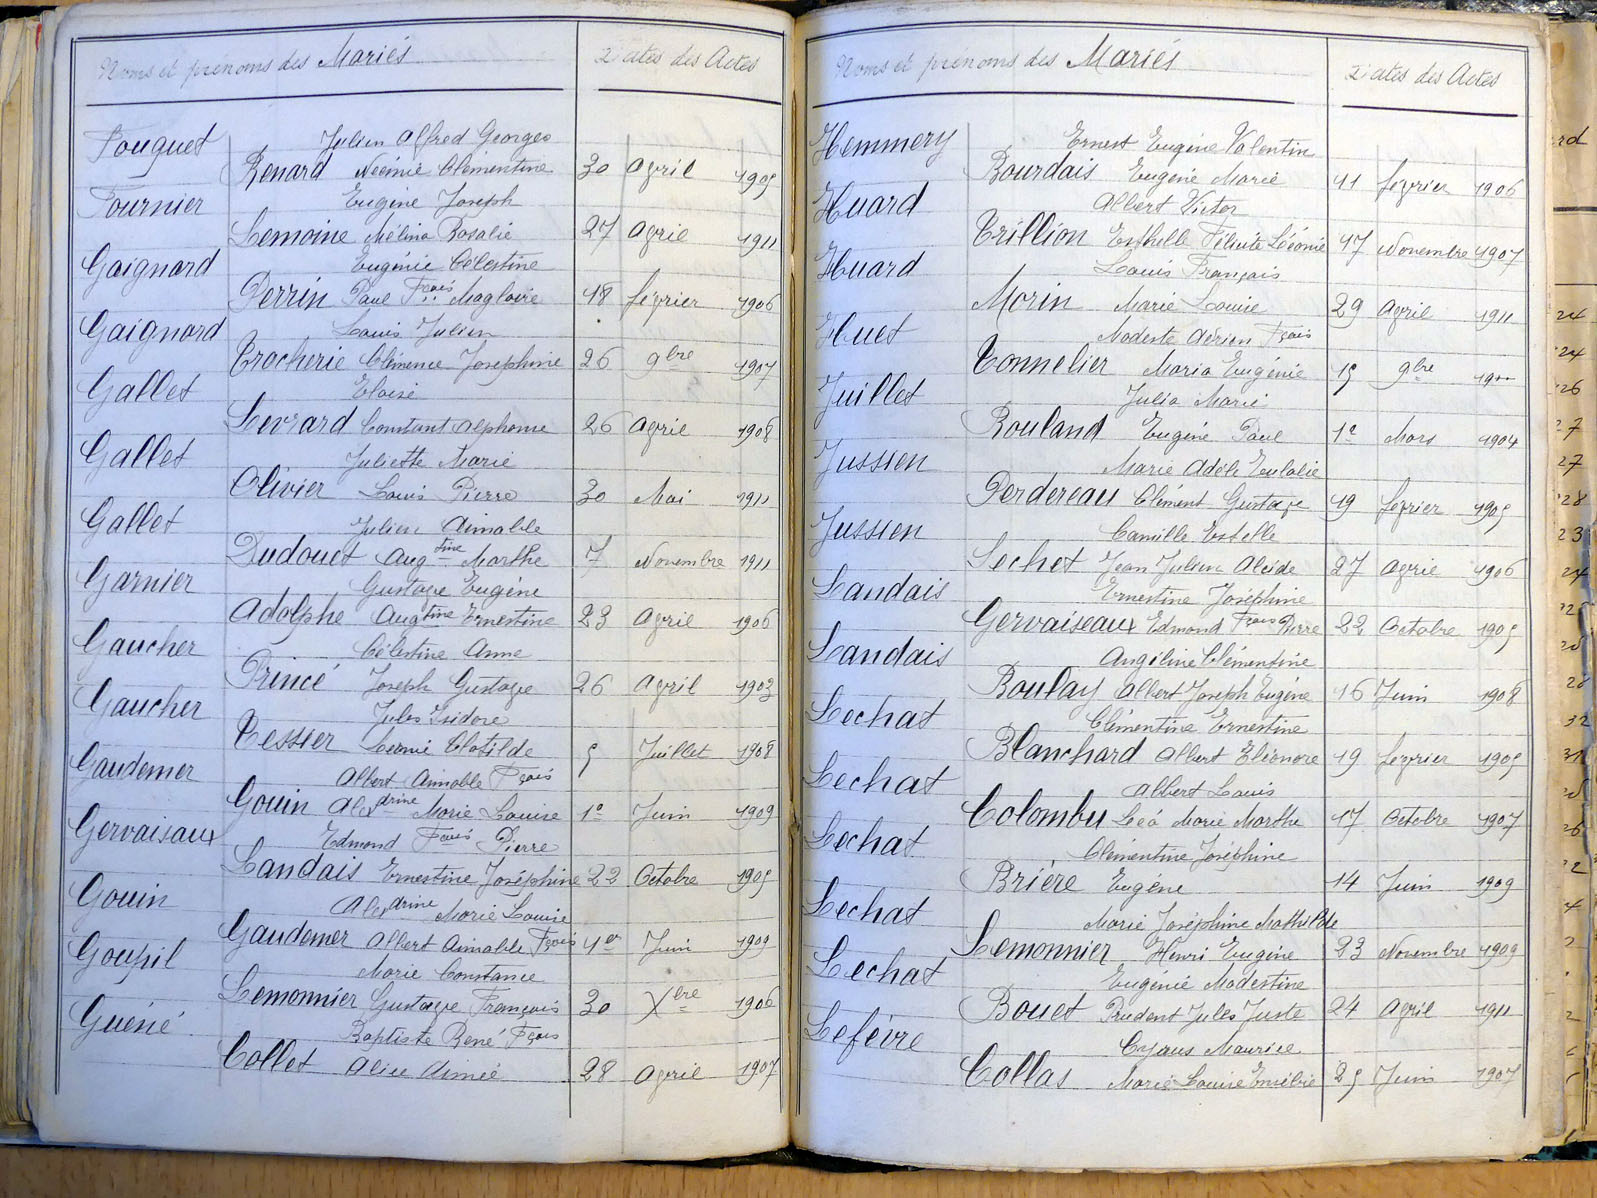 Noms et prénoms des Mariés Dates des Actes
Fouquet Julien Alfred Georges
Renard Noémie Clémentine 30 Avril 1905
Fournier Eugène Joseph
Lemoine Mélina Rosalie 27 Avril 1911
Gaignard Eugénie Célestine
Perrin Paul Fçois Magloire 18 février 1906
Gaignard Louis Julien
Trocherie Clémence Joséphine 26 9bre 1907
Gallet Eloïse
Levrard Constant Alphonse 26 Avril 1908
Gallet Juliette Marie
Olivier Louis Pierre 30 Mai 1911
Gallet Julien Aimable
Dudouet Augtine Marthe 7 Novembre 1911
Garnier Gustave Eugène
Adolphe Augtine Ernestine 23 Avril 1906
Gaucher Célestine Anne
Princé Joseph Gustave 26 Avril 1903
Gaucher Jules Isidore
Tessier Léonie Clotilde 5 Juillet 1908
Gaudemer Albert Aimable Fçois
Gouin Alexdrine Marie Louise 1e Juin 1909
Gervaisaux Edmond Fçois Pierre
Landais Ernestine Joséphine 22 Octobre 1905
Gouin Alexdrine Marie Louise
Gaudemer Albert Aimable Fçois 1er Juin 1909
Goupil Marie Constance
Lemonnier Gustave François 30 Xbre 1906
Guéné Baptiste René Fçois
Collet Alice Aimée 28 Avril 1907
Noms et prénoms des Mariés Dates des Actes
Hemmery Ernest Eugène Valentin
Bourdais Eugénie Marie 11 février 1906
Huard Albert Victor
Trillion Esthelle Félicité Léonie 17 Novembre 1907
Huard Louis Français
Morin Marie Louise 29 Avril 1911
Huet Modeste Adrien Fçois
Tonnelier Maria Eugénie 15 9bre
Juillet Julia Marie
Rouland Eugène Paul 1e Mars 1904
Jussien Marie Adèle Eulalie
Perdereau Clément Gustave 19 février 1905
Jussien Camille Estelle
Lechet Jean Julien Alcide 27 Avril 1906
Landais Ernestine Joséphine
Gervaiseaux Edmond Fçois Pierre 22 Octobre 1905
Landais Angéline Clémentine
Boulay Albert Joseph Eugène 16 Juin 1908
Lechat Clémentine Ernestine
Blanchard Albert Eléonore 19 février 1905
Lechat Albert Louis
Colombu Léa Marie Marthe 17 Octobre 1907
Lechat Clémentine Joséphine
Brière Eugène 14 Juin 1909
Lechat Marie Joséphine Mathilde
Lemonnier Henri Eugène 23 Novembre 1909
Lechat Eugénie Modestine
Bouet Prudent Jules Juste 24 Avril 1911
Lefèvre Maurice
Collas Marie Louise 25 Juin 1907